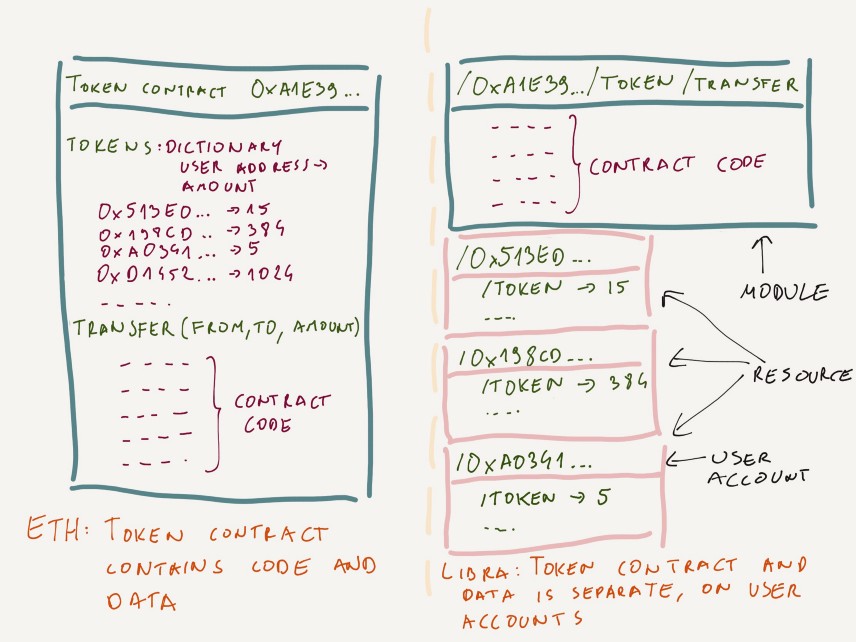 TOKEN CONTRACT 0xA1E39...
TOKENS: DICTIONARY
USER ADDRESS →
AMOUNT
0x513ED... → 15
0x198CD .. → 384
0xA0341... → 5
0xD1452... → 1024
TRANSFER (FROM, TO, AMOUNT)
CONTRACT
CODE
ETH: TOKEN CONTRACT
CONTAINS CODE AND
DATA
/0xA1E39.../TOKEN/TRANSFER
CONTRACT CODE
MODULE
/0x513ED...
/TOKEN → 15
/0x198CD...
/TOKEN → 384
RESOURCE
/0xA0341...
/TOKEN → 5
USER
ACCOUNT
LIBRA: TOKEN CONTRACT AND
DATA IS SEPARATE, ON USER
ACCOUNTS